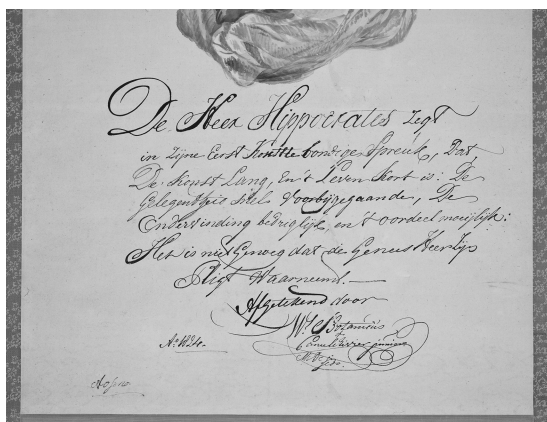 De Heer Hippocrates zegt
in zijne Eerst Kortte bondige Spreuk, Dat,
De Konst Lang, En 't Leven Kort is: De
Gelegentheid snels Voorbijgaande, De
Ondervinding bedrieglijk, en 't oordeel moeijlijk:
Het is niet Genoeg dat de Genees Heer zijn
Pligt Waarneemt.
Afgetekend door
Mr. Botanicus
Ao. 1824.